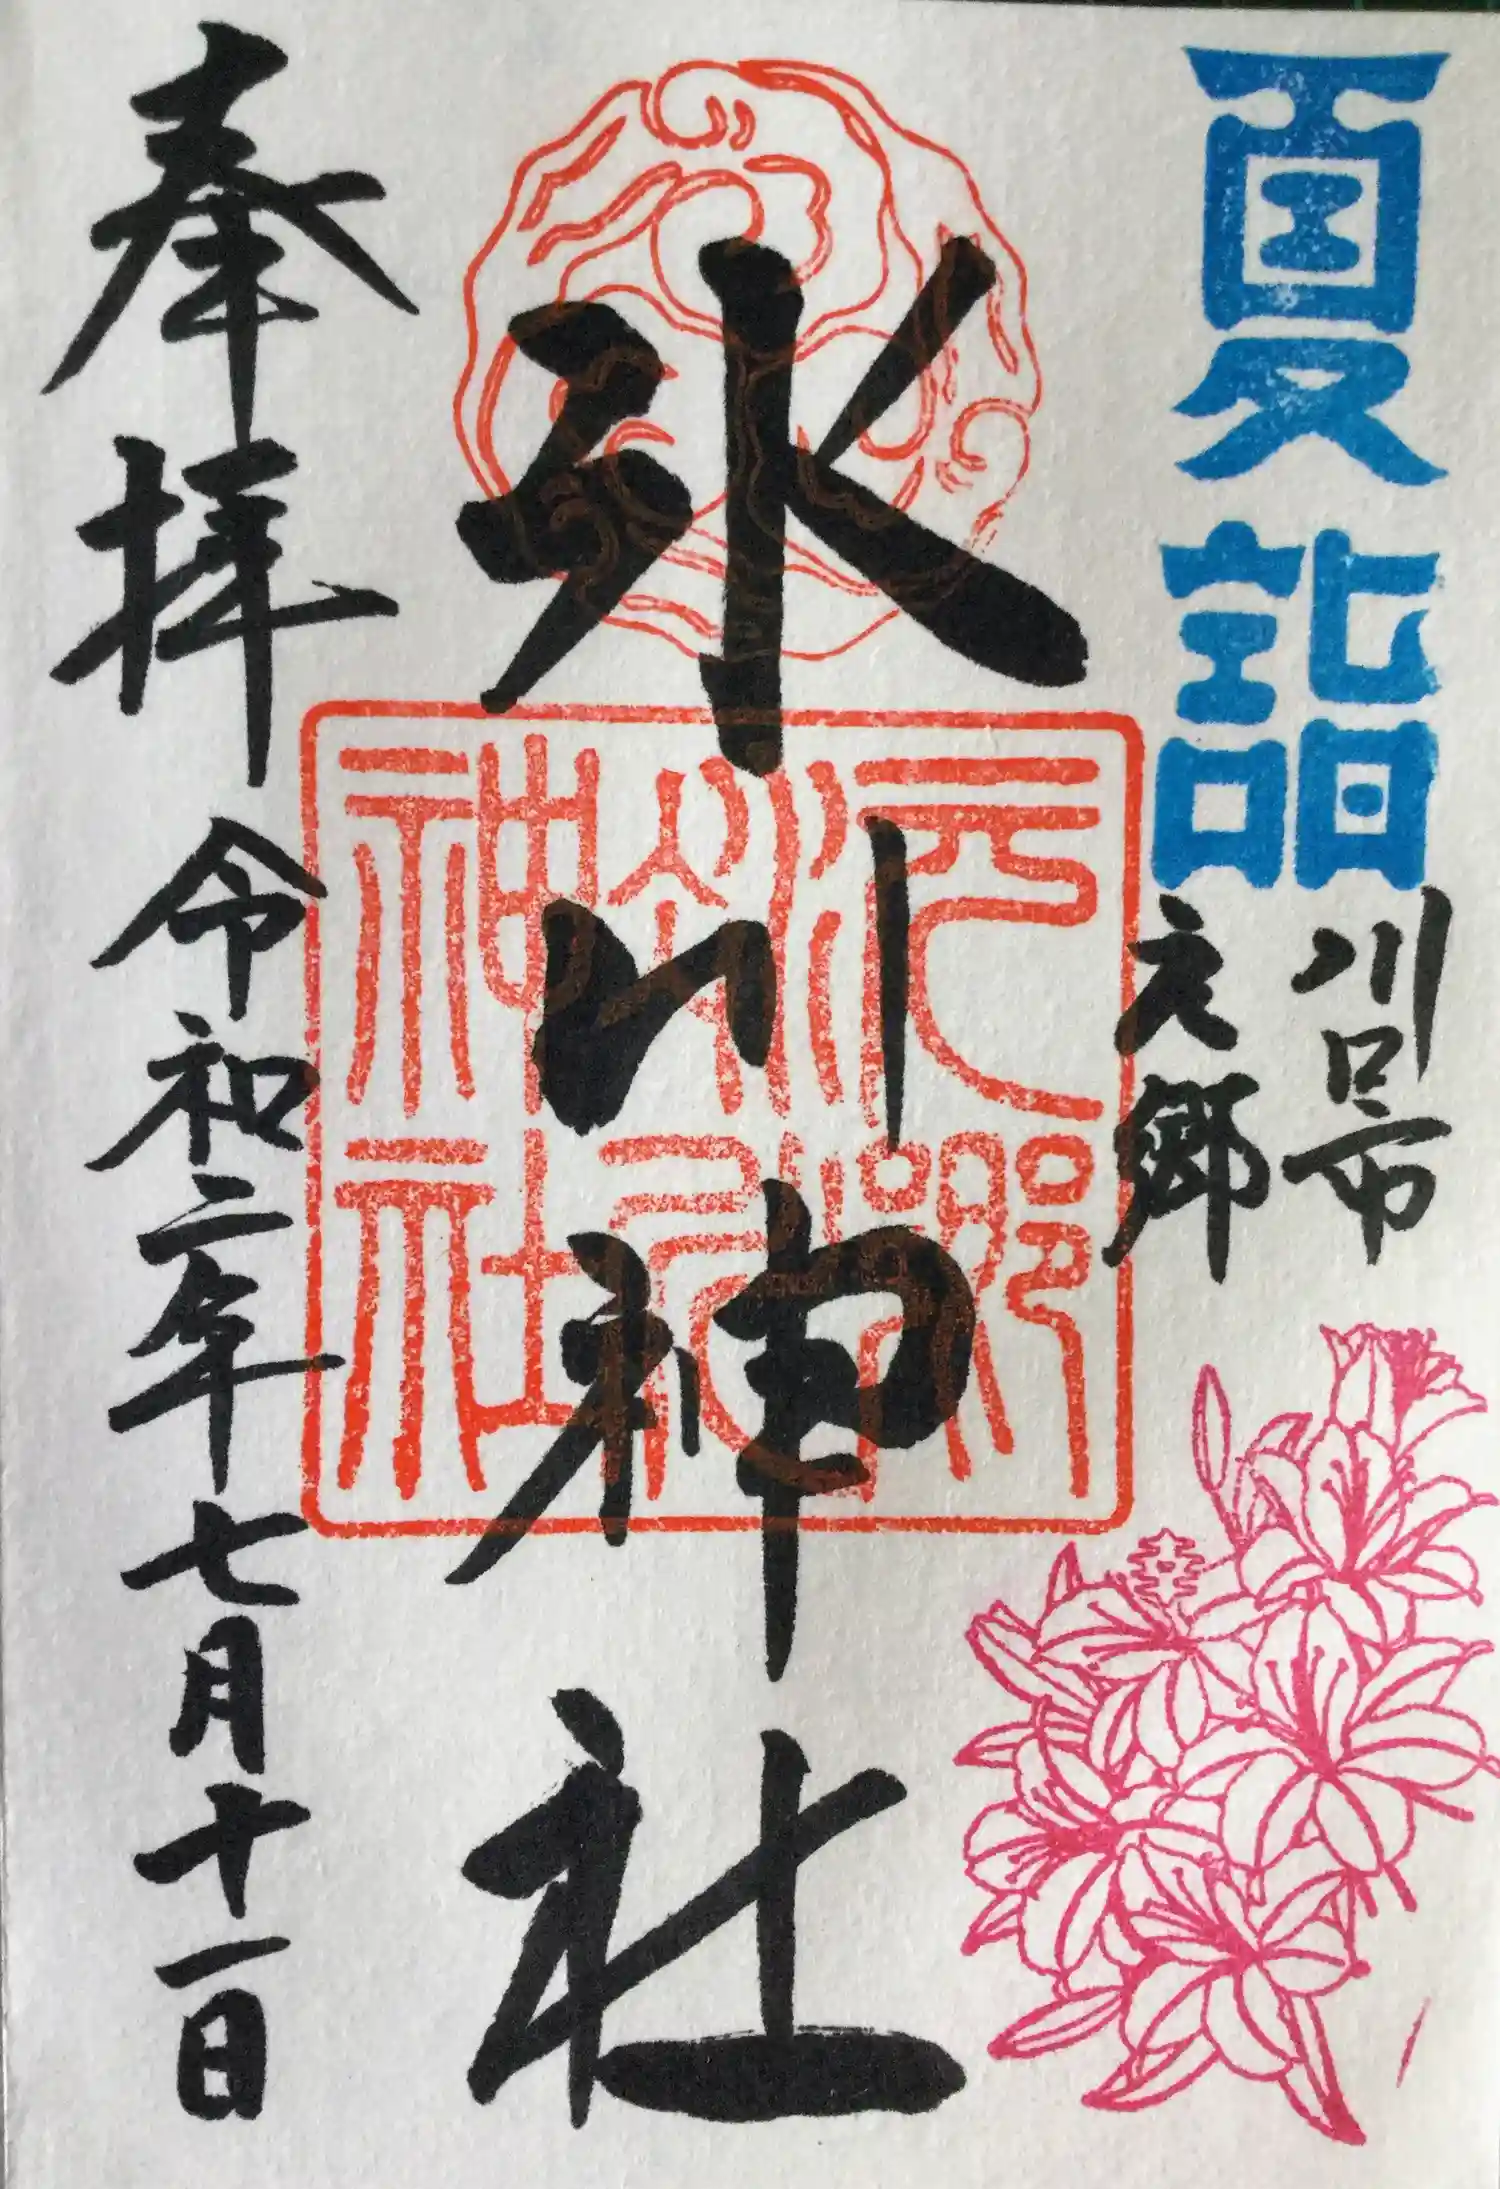 夏詣
川口市
元郷
氷川神社
元郷
氷川
神社
奉拝
令和二年七月十一日